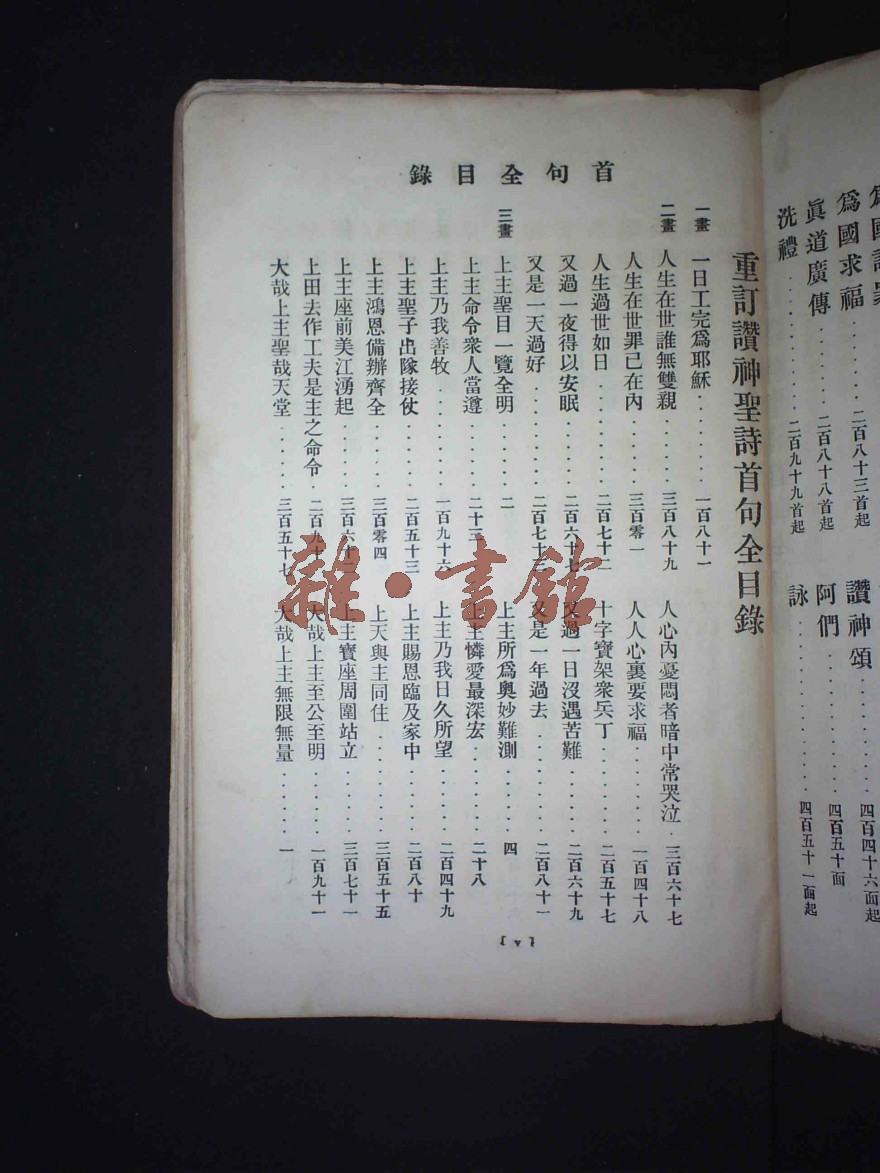 爲國求福......二百八十三首起
眞道廣傳......二百八十八首起
洗禮......二百九十九首起
讚神頌......四百四十六面起
阿們......四百五十面
詠......四百五十一面起
首句全目錄
重訂讚神聖詩首句全目錄
一畫 一日工完爲耶穌......一百八十一
二畫 人生在世誰無雙親......三百八十九 人心內憂悶者暗中常哭泣.三百六十七
人生在世罪已在內......三百零一 人人心裏要求福......一百四十八
人生過世如日......二百七十二 十字寶架衆兵丁......二百五十七
又過一夜得以安眠......二百六十七 又過一日沒遇苦難......二百六十九
又是一天過好......二百七十三 又是一年過去......二百八十一
三畫 上主聖目一覽全明......二 上主所爲奧妙難測......四
上主命令衆人當遵......二十三 上主憐愛最深宏......二十八
上主乃我善牧......一百九十六 上主乃我日久所望......二百四十九
上主聖子出隊接仗......二百五十三 上主賜恩臨及家中......二百八十
上主鴻恩備辦齊全......三百零四 上天與主同住......三百五十五
上主座前美江湧起 上主寶座周圍站立......三百七十一
上田去作工夫是主之命令. 大哉上主至公至明......一百九十一
大哉上主聖哉天堂......三百五十七 大哉上主無限無量......一
雜·書館